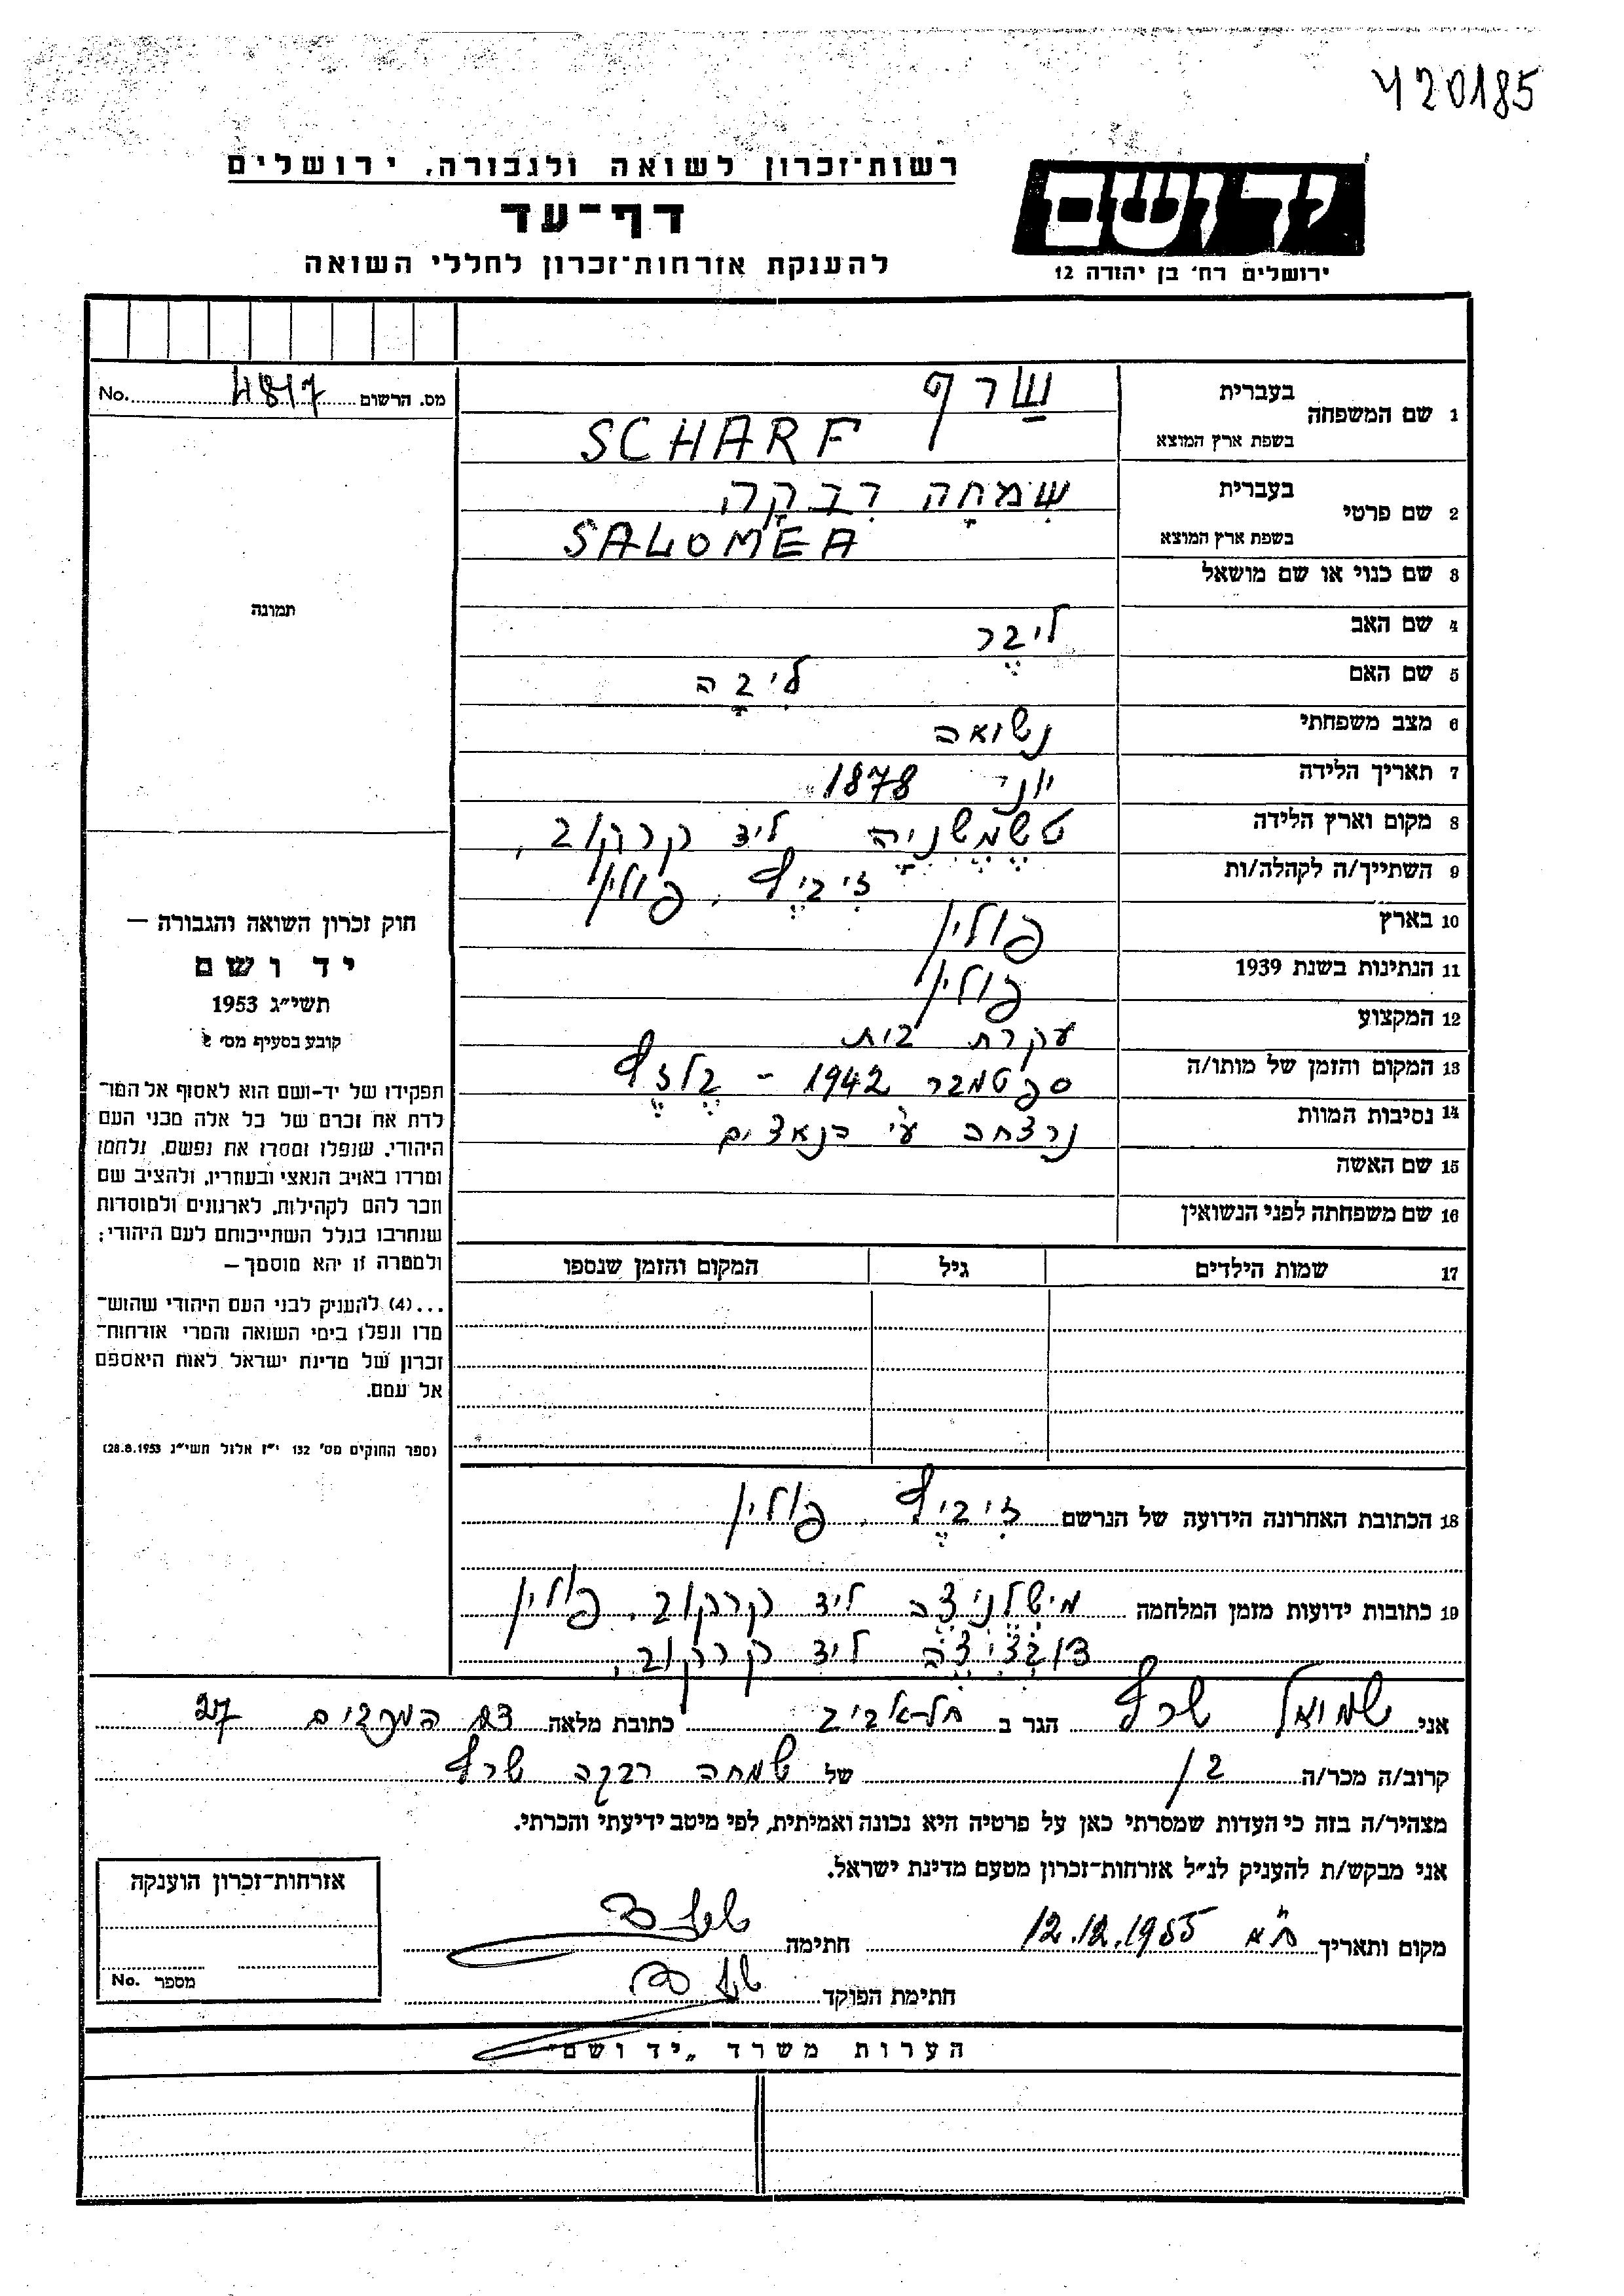 420185
רשות־זכרון לשואה ולגבורה, ירושלים
דף־עד
להענקת אזרחות־זכרון לחללי השואה
יד ושם
ירושלים רח' בן יהודה 12
מס. הרשום 4817 No.
1 שם המשפחה בעברית שַרף
בשפת ארץ המוצא SCHARF
2 שם פרטי בעברית שִמחָה רִבקָה
בשפת ארץ המוצא SALOMEA
3 שם כנוי או שם מושאל
4 שם האב ליבֶּר
5 שם האם לִיבָּה
6 מצב משפחתי נשואה
7 תאריך הלידה יוני 1878
8 מקום וארץ הלידה ליד קרקוב,
9 השתייך/ה לקהלה/ות פולין
10 בארץ פולין
11 הנתינות בשנת 1939 פולין
12 המקצוע עקרת בית
13 המקום והזמן של מותו/ה ספטמבר 1942 - בֶּלזֶץ
14 נסיבות המוות נרצחה ע"י הנאצים
15 שם האשה
16 שם משפחתה לפני הנשואין
17 שמות הילדים גיל המקום והזמן שנספו
תמונה
חוק זכרון השואה והגבורה —
יד ושם
תשי״ג 1953
קובע בסעיף מס׳ 2
תפקידו של יד-ושם הוא לאסוף אל המו־
לדת את זכרם של כל אלה מבני העם
היהודי, שנפלו ומסרו את נפשם, נלחמו
ומרדו באויב הנאצי ובעוזריו, ולהציב שם
וזכר להם לקהילות, לארגונים ולמוסדות
שנחרבו בגלל השתייכותם לעם היהודי;
ולמטרה זו יהא מוסמך —
...(4) להעניק לבני העם היהודי שהוש־
מדו ונפלו בימי השואה והמרי אזרחות־
זכרון של מדינת ישראל לאות היאספם
אל עמם.
(ספר החוקים מס׳ 132 י״ז אלול תשי״ג 28.8.1953)
18 הכתובת האחרונה הידועה של הנרשם פולין
19 כתובות ידועות מזמן המלחמה ליד קרקוב, פולין
ליד קרקוב,
אני שמואל שרף הגר ב תל-אביב כתובת מלאה 27
קרוב/ה מכר/ה בן של שמחה רבקה שרף
מצהיר/ה בזה כי העדות שמסרתי כאן על פרטיה היא נכונה ואמיתית, לפי מיטב ידיעתי והכרתי.
אני מבקש/ת להעניק לנ״ל אזרחות־זכרון מטעם מדינת ישראל.
מקום ותאריך ת"א 12.12.1955 חתימה
חתימת הפוקד
אזרחות־זכרון הוענקה
מספר No.
הערות משרד „יד ושם"